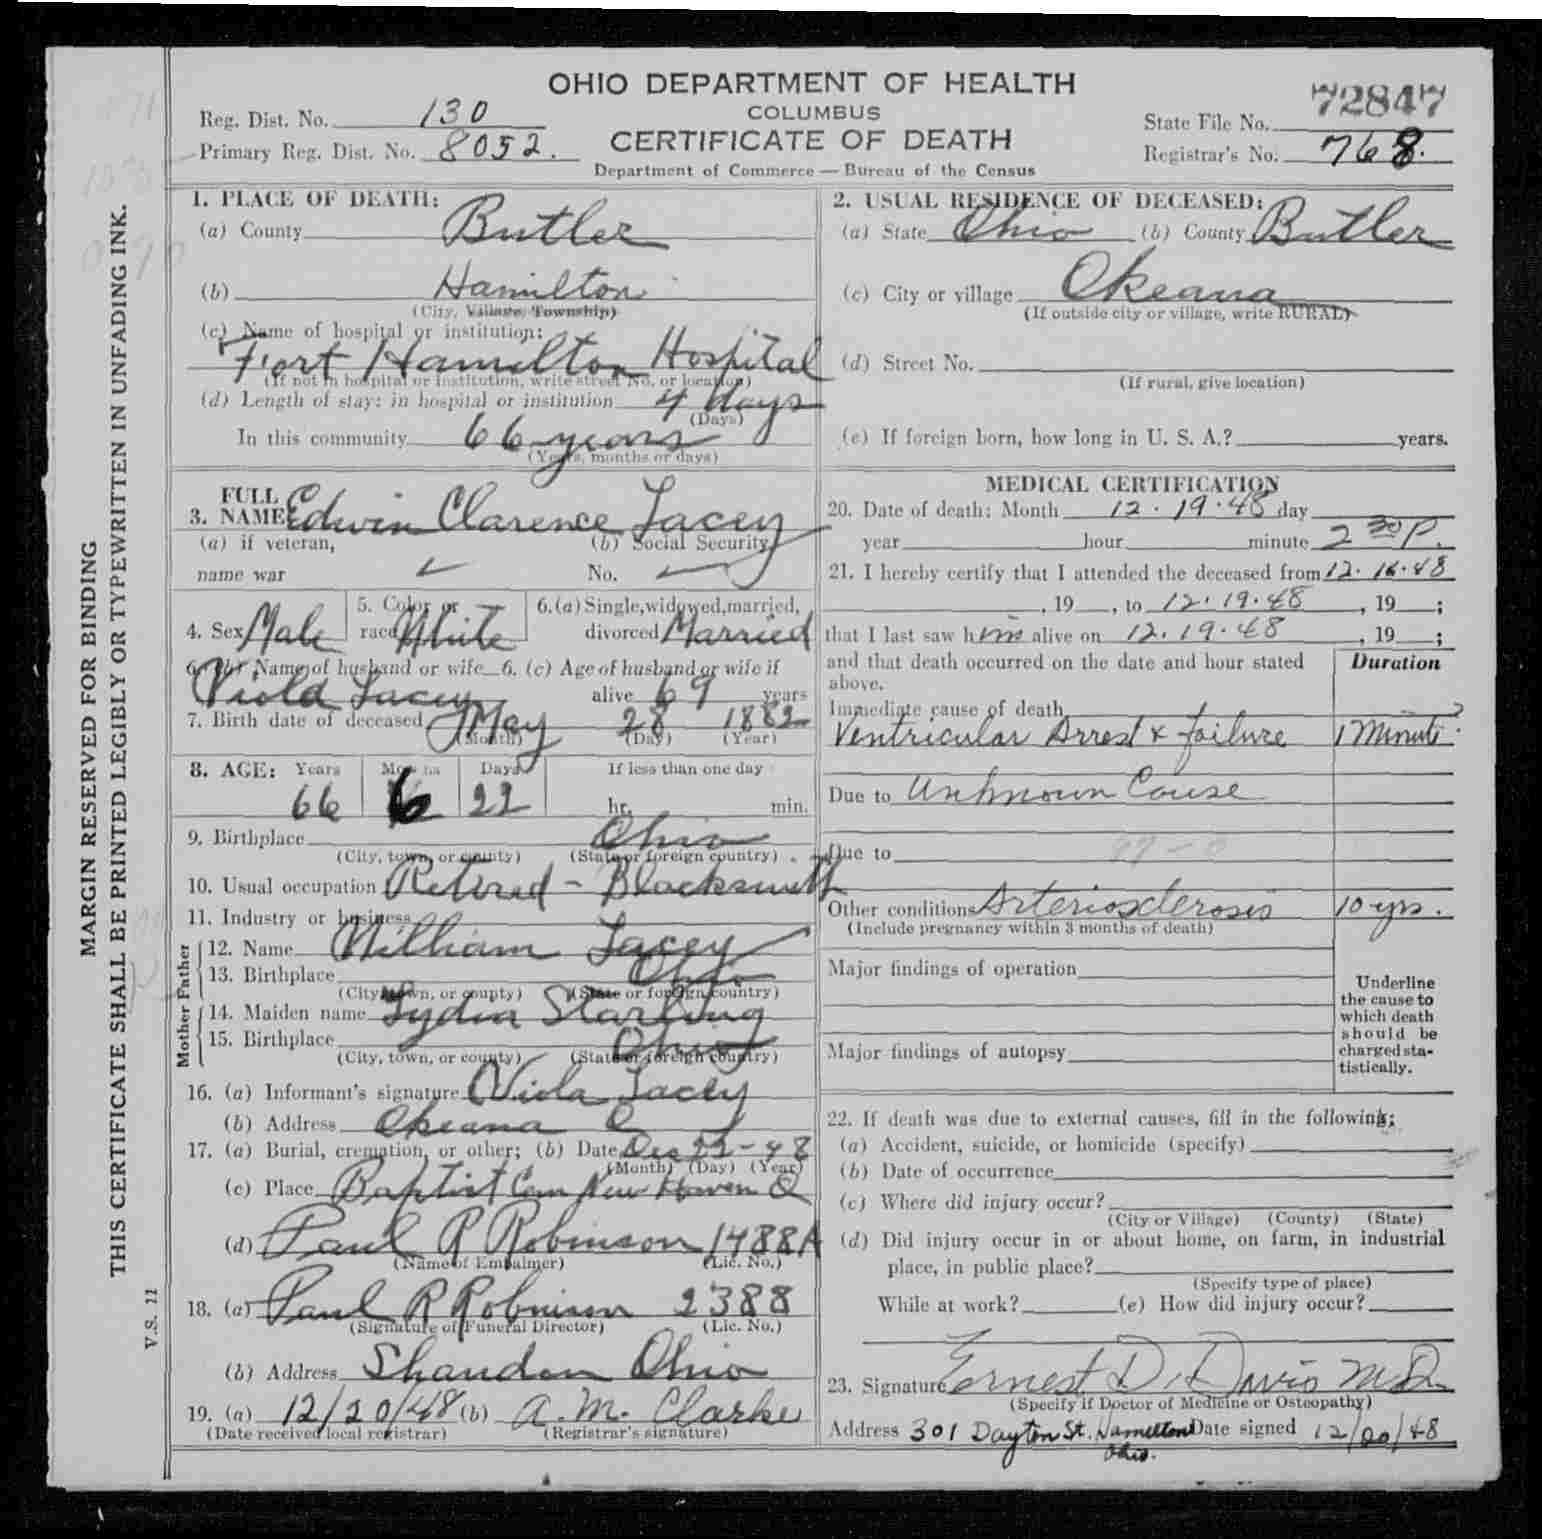 OHIO DEPARTMENT OF HEALTH
COLUMBUS
CERTIFICATE OF DEATH
Department of Commerce — Bureau of the Census
Reg. Dist. No. 130
Primary Reg. Dist. No. 8052.
72847
State File No.
Registrar's No. 768.
MARGIN RESERVED FOR BINDING
THIS CERTIFICATE SHALL BE PRINTED LEGIBLY OR TYPEWRITTEN IN UNFADING INK.
V.S. 11
1. PLACE OF DEATH:
(a) County Butler
(b) Hamilton
(City, Village, Township)
(c) Name of hospital or institution:
Fort Hamilton Hospital
(If not in hospital or institution, write street No. or location)
(d) Length of stay: in hospital or institution 4 days
(Days)
In this community 66 years
(Years, months or days)
2. USUAL RESIDENCE OF DECEASED:
(a) State Ohio (b) County Butler
(c) City or village Okeana
(If outside city or village, write RURAL)
(d) Street No.
(If rural, give location)
(e) If foreign born, how long in U. S. A.? years.
3. FULL NAME Edwin Clarence Lacey
(a) if veteran, name war
(b) Social Security No.
4. Sex Male
5. Color or race White
6. (a) Single, widowed, married, divorced Married
6. (b) Name of husband or wife Viola Lacey
6. (c) Age of husband or wife if alive 69 years
7. Birth date of deceased May 28 1882
(Month) (Day) (Year)
8. AGE: Years Months Days If less than one day
66 6 22 hr. min.
9. Birthplace Ohio
(City, town, or county) (State or foreign country)
10. Usual occupation Retired - Blacksmith
11. Industry or business
Father
12. Name William Lacey
13. Birthplace Ohio
(City, town, or county) (State or foreign country)
Mother
14. Maiden name Lydia Starling
15. Birthplace Ohio
(City, town, or county) (State or foreign country)
16. (a) Informant's signature Viola Lacey
(b) Address Okeana O
17. (a) Burial, cremation, or other; (b) Date Dec 22-48
(Month) (Day) (Year)
(c) Place Baptist Cem New Haven O
(d) Paul R Robinson 1488A
(Name of Embalmer) (Lic. No.)
18. (a) Paul R Robinson 2388
(Signature of Funeral Director) (Lic. No.)
(b) Address Shandon Ohio
19. (a) 12/20/48 (b) A. M. Clarke
(Date received local registrar) (Registrar's signature)
MEDICAL CERTIFICATION
20. Date of death: Month 12.19.48 day
year hour minute 2 30 P.
21. I hereby certify that I attended the deceased from 12.16.48
, 19 , to 12.19.48 , 19 ;
that I last saw him alive on 12.19.48 , 19 ;
and that death occurred on the date and hour stated above.
Duration
Immediate cause of death
Ventricular Arrest & failure 1 Minute
Due to Unknown Cause
Due to
Other conditions Arteriosclerosis 10 yrs.
(Include pregnancy within 3 months of death)
Major findings of operation
Major findings of autopsy
Underline the cause to which death should be charged statistically.
22. If death was due to external causes, fill in the following:
(a) Accident, suicide, or homicide (specify)
(b) Date of occurrence
(c) Where did injury occur?
(City or Village) (County) (State)
(d) Did injury occur in or about home, on farm, in industrial
place, in public place?
(Specify type of place)
While at work? (e) How did injury occur?
23. Signature Ernest D. Davis M.D.
(Specify if Doctor of Medicine or Osteopathy)
Address 301 Dayton St. Hamilton Ohio. Date signed 12/20/48